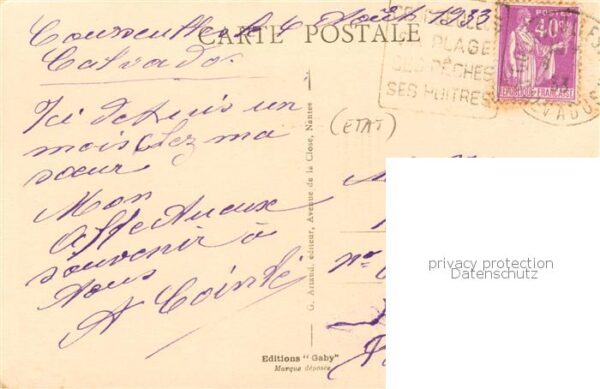 Courseulles le 4 Août 1933
CARTE POSTALE
Calvados
Ici depuis un
mois chez ma
sœur
Mon
affectueux
souvenir à
Vous
A Cointé
(ETAT)
G. Artaud, editeur, Avenue de la Close, Nantes
Editions "Gaby"
Marque déposée
PLAGE
SES PÊCHES
SES HUITRES
POSTES
40c
REPUBLIQUE FRANÇAISE
privacy protection
Datenschutz